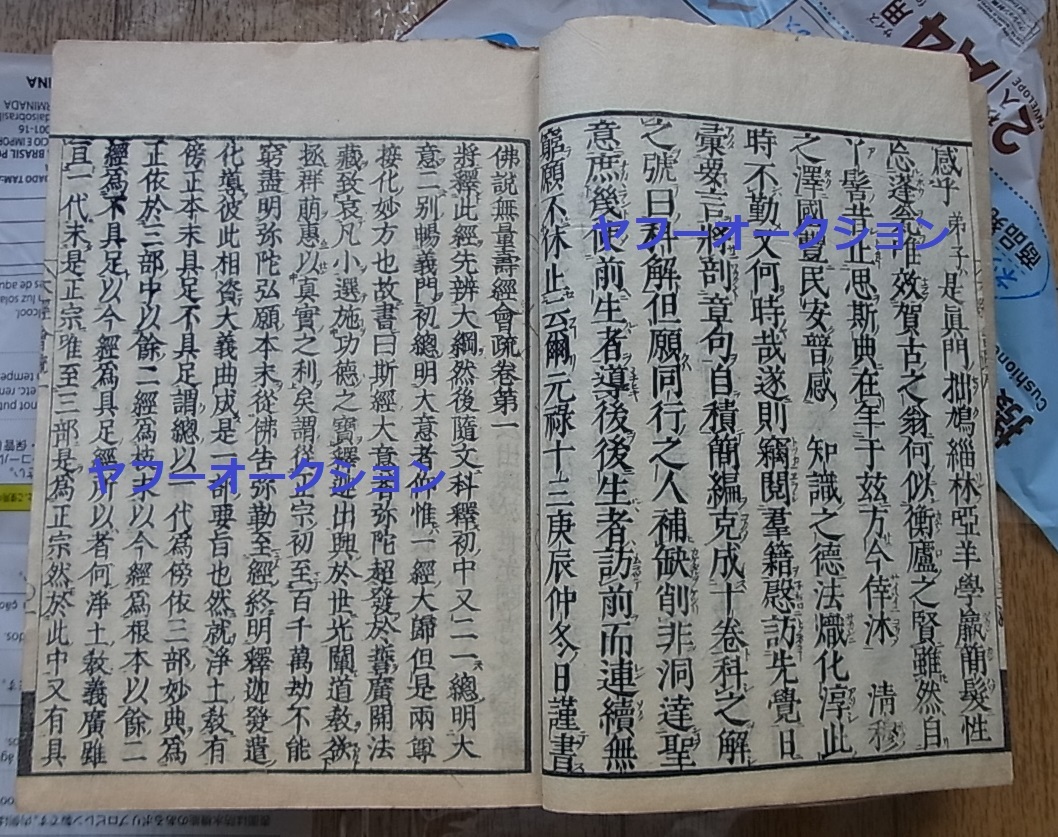 感乎 弟子是眞門拙鳩緇林啞羊學羸簡髮性
忘逢兔唯效賀古之翁何似衡廬之賢雖然自
丫髻甞止思斯典在年于玆方今倖沐 清穆
之澤國豐民安普感 知識之德法熾化淳此
時不勤又何時哉遂則竊閱羣籍慇訪先覺日
彙要言將剖章句自積簡編克成十卷科之解
之號曰科解但願同行之人補缺削非洞達聖
意庶幾使前生者導後後生者訪前而連續無
窮願不休止云爾元祿十三庚辰仲冬今日謹書
佛說無量壽經會疏卷第一
將釋此經先辨大綱然後隨文科釋初中又二一總明大
意二別暢義門初總明大意者伏惟一經大歸但是兩尊
接化妙方也故書曰斯經大意者弥陀超發於誓廣開法
藏致哀凡小選施功德之寶釋迦出興於世光闡道教欲
拯群萠惠以真實之利矣謂從上宗初至百千萬劫不能
窮盡明弥陀弘願本末從佛告弥勒至經終明釋迦發遣
化填彼此相資大義曲成是一部要旨也然就淨土教有
傍正本末具足不具足謂總以一代為傍依三部妙典為
正依於三部中以餘二經為枝末以今經為根本以餘二
經為不具足以今經為具足經所以者何淨土教義廣雖
亘一代未是正宗唯至三部是為正宗然於此中又有具
ヤフーオークション
ヤフーオークション